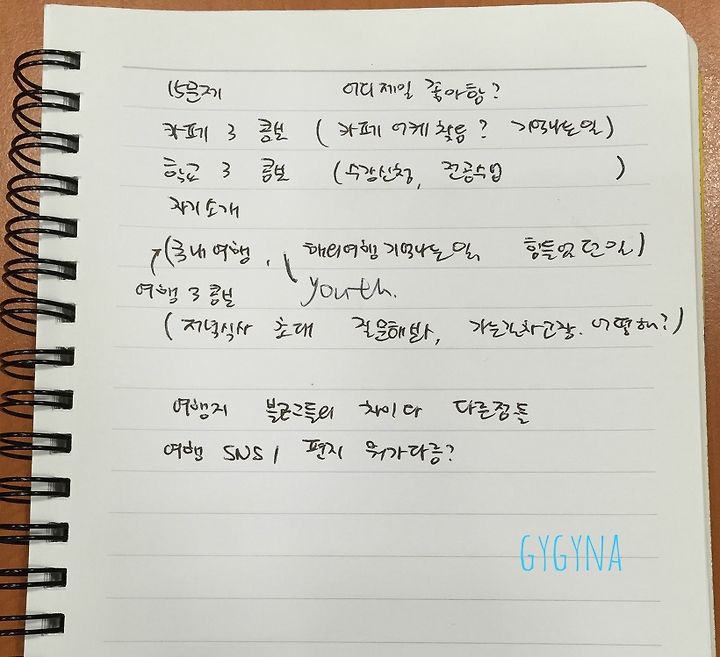 15문제 어디제일 좋아함?
카페 3 콤보 (카페 어케찾음? 기억나는일)
학교 3 콤보 (수강신청, 전공수업 )
자기소개
(국내여행, 해외여행기억나는일, 힘들었던일)
여행 3 콤보 youth.
(저녁식사 초대 질문해봐, 가는길차고장. 어떻해?)
여행지 차이다 다른점들
여행 SNS / 편지 뭐가다름?
GYGYNA